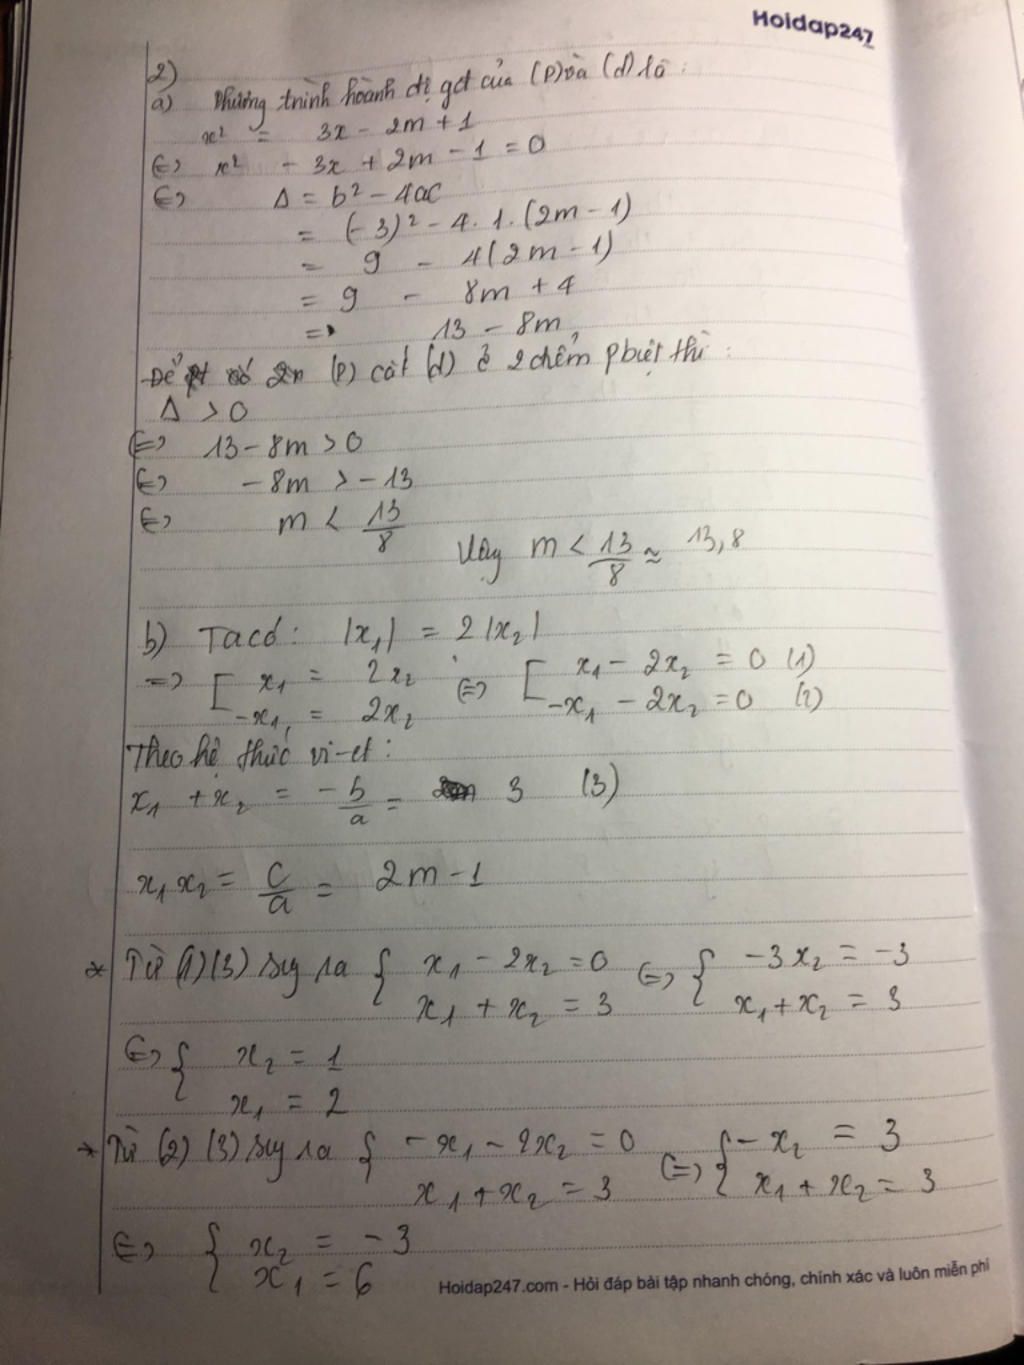 Hoidap247
2)
a) Phương trình hoành độ gđ của (P) và (d) là :
x² = 3x - 2m + 1
(=) x² - 3x + 2m - 1 = 0
(=) Δ = b² - 4ac
= (-3)² - 4.1.(2m - 1)
= 9 - 4(2m - 1)
= 9 - 8m + 4
=> 13 - 8m
Để (P) cắt (d) ở 2 điểm pbiệt thì :
Δ > 0
(=) 13 - 8m > 0
(=) -8m > -13
(=) m < 13/8
Vậy m < 13/8 ≈ 13,8
b) Ta có : |x₁| = 2|x₂|
=> [ x₁ = 2x₂ (=) [ x₁ - 2x₂ = 0 (1)
-x₁ = 2x₂ -x₁ - 2x₂ = 0 (2)
Theo hệ thức vi-et :
x₁ + x₂ = -b/a = 3 (3)
x₁x₂ = c/a = 2m - 1
* Từ (1)(3) suy ra { x₁ - 2x₂ = 0 (=) { -3x₂ = -3
x₁ + x₂ = 3 x₁ + x₂ = 3
(=) { x₂ = 1
x₁ = 2
* Từ (2)(3) suy ra { -x₁ - 2x₂ = 0 (=) { -x₂ = 3
x₁ + x₂ = 3 x₁ + x₂ = 3
(=) { x₂ = -3
x₁ = 6
Hoidap247.com - Hỏi đáp bài tập nhanh chóng, chính xác và luôn miễn phí